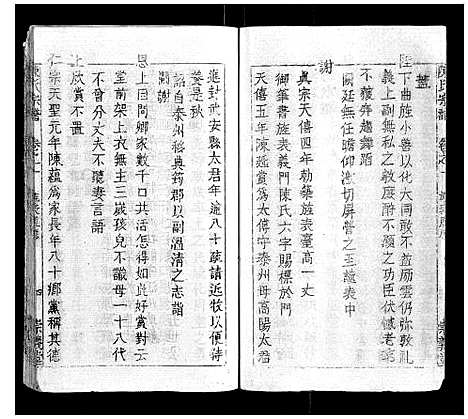 陛下曲旌小善以化大同敢不益励雲仍弥敦礼
教庶解無私之功臣伏憾老
不獲奔趨舞蹈
闕廷無任瞻仰激切屏營之至謹表申
謝
真宗天禧四年勅築旌表臺高一丈
御筆書旌表義門陳氏六字賜標於門
天禧五年
太傅守泰州母高陽太君
進封武安縣太君年逾八十疏請近牧以便侍
養是秋
詔自泰州移典筠郡以副溫清之志詣
闕謝
恩上因問卿家數千口共活怎得如此好賞對云
堂前架上衣無主三歲孩兒不識母一十八代
不曾分丈夫不聽妻言語
上欣賞不置
仁宗天聖元年陳蘊為家長年八十鄉黨稱其德
陳氏宗譜
卷之一